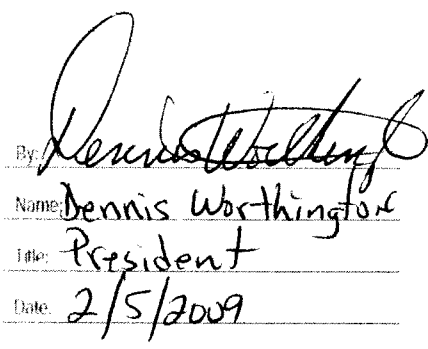 By: Dennis Worthingt
Name: Dennis Worthington
Title: President
Date: 2/5/2009